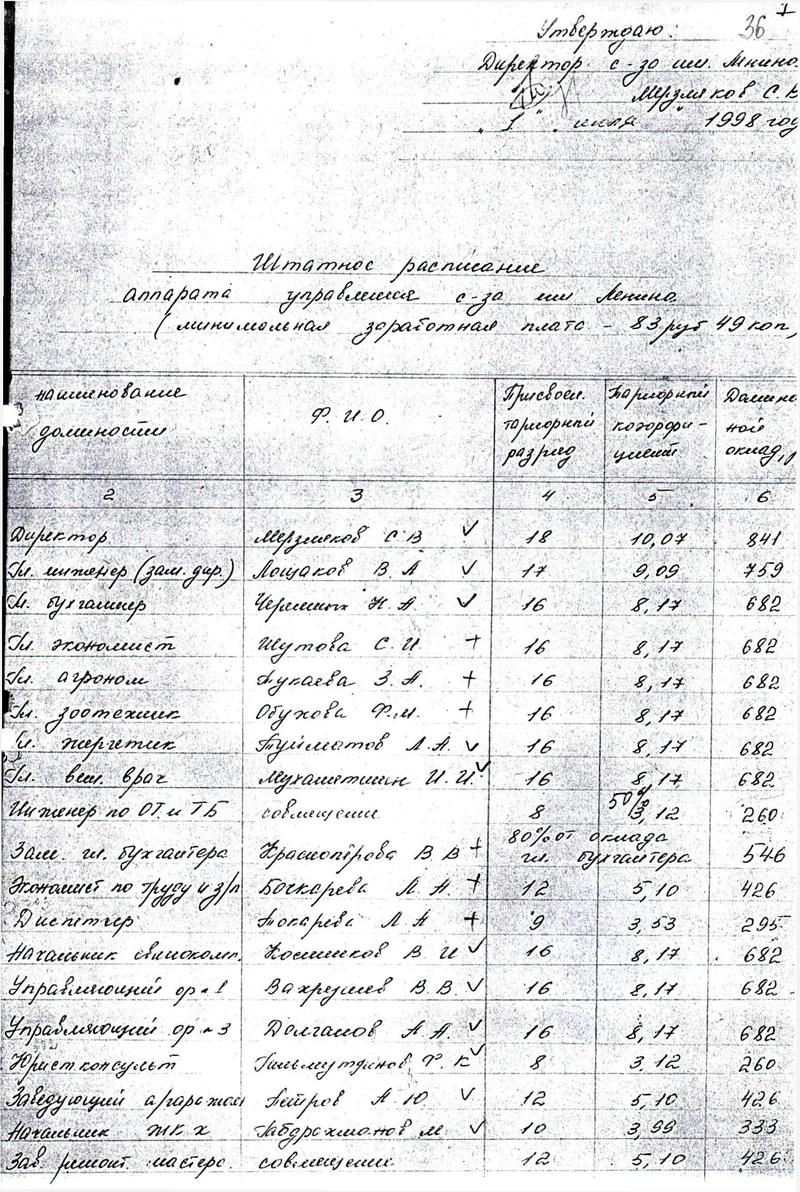 1
36
Утверждаю:
Директор с-за им. Ленина
Мерзляков С. В
" 1 " июля 1998 год
Штатное расписание
аппарата управления с-за им Ленина
(минимальная заработная плата - 83 руб 49 коп,
наименование должности Ф. И. О. Присвоен. тарифный разряд Тарифный коэффи-циент Должно ной оклад,
2 3 4 5 6
Директор Мерзляков С В ✓ 18 10,07 841
Гл. инженер (зам. дир.) Лощаков В. А ✓ 17 9,09 759
Гл. бухгалтер Черепных Н. А. ✓ 16 8,17 682
Гл. экономист Шутова С. И + 16 8,17 682
Гл. агроном Тукаева З. А. + 16 8,17 682
Гл. зоотехник Обухова Ф. М. + 16 8,17 682
Гл. энергетик Туйматов Л. А. ✓ 16 8,17 682
Гл. вет. врач Мухаметшин И. И. ✓ 16 8,17 682
Инженер по ОТ и ТБ совмещение 8 50% 3,12 260
Зам. гл. бухгалтера Краснопёрова В. В + 80% от оклада гл. бухгалтера 546
Экономист по труду и з/п Бочкарева Л. А. + 12 5,10 426
Диспетчер Токарева Л А + 9 3,53 295
Начальник свинокомп. Косинков В. И ✓ 16 8,17 682
Управляющий ор № 1 Вахрушев В. В. ✓ 16 8,17 682
Управляющий ор № 3 Долганов А. А. ✓ 16 8,17 682
Юристконсульт Гильмутдинов Ф. К ✓ 8 3,12 260
Заведующий а/гаражом Петров А Ю. ✓ 12 5,10 426
Начальник ЖКХ Габдрахманов М. ✓ 10 3,99 333
Зав ремонт. мастерс. совмещение 12 5,10 426